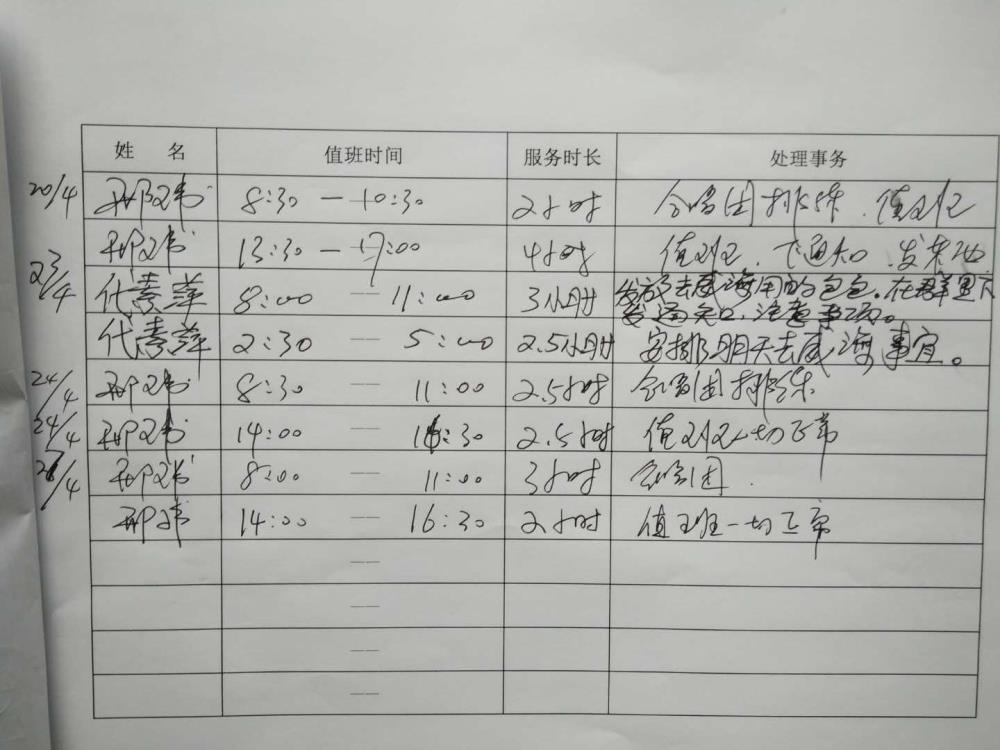 姓 名 值班时间 服务时长 处理事务
20/4 邢文书 8:30 — 10:30 2小时 合唱团排练、值班
邢文书 13:30 — 17:00 4小时 值班、下通知、发
23/4 代素萍 8:00 — 11:00 3小时 发放了去威海用的包包。在群里下
发通知,注意事项。
代素萍 2:30 — 5:00 2.5小时 安排明天去威海事宜。
24/4 邢文书 8:30 — 11:00 2.5小时 合唱团排练
24/4 邢文书 14:00 — 16:30 2.5小时 值班一切正常
/4 邢文书 8:00 — 11:00 3小时 合唱团.
邢文书 14:00 — 16:30 2小时 值班一切正常
—
—
—
—